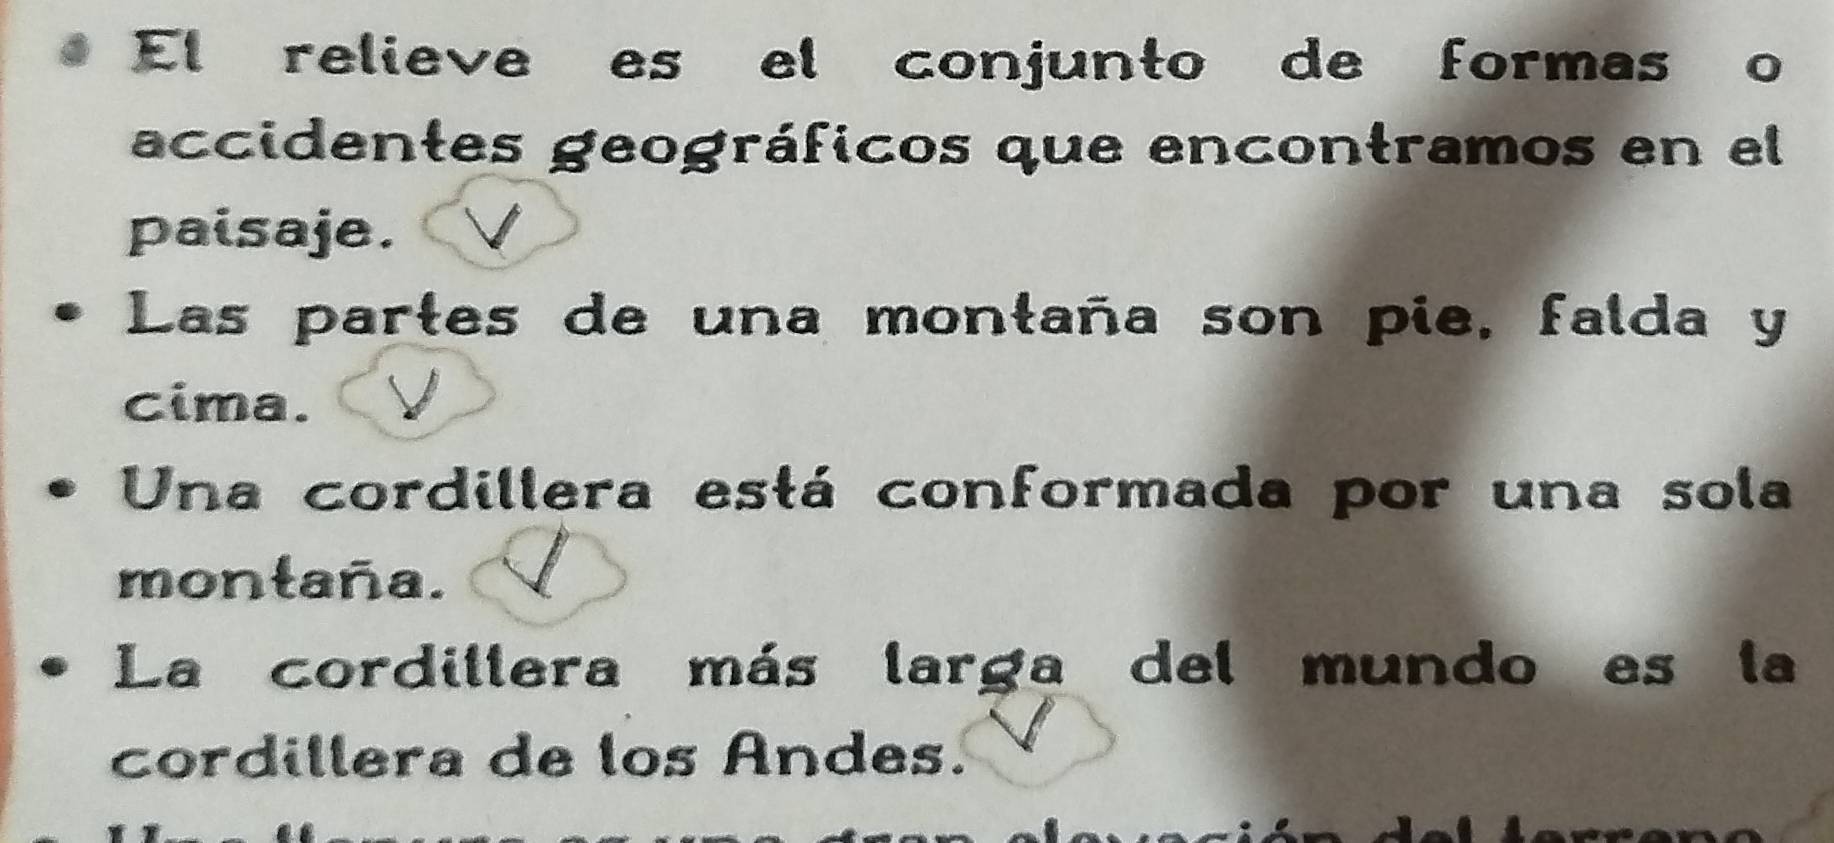 • El relieve es el conjunto de formas o
accidentes geográficos que encontramos en el
paisaje. V
• Las partes de una montaña son pie, falda y
cima. V
• Una cordillera está conformada por una sola
montaña. V
• La cordillera más larga del mundo es la
cordillera de los Andes. V